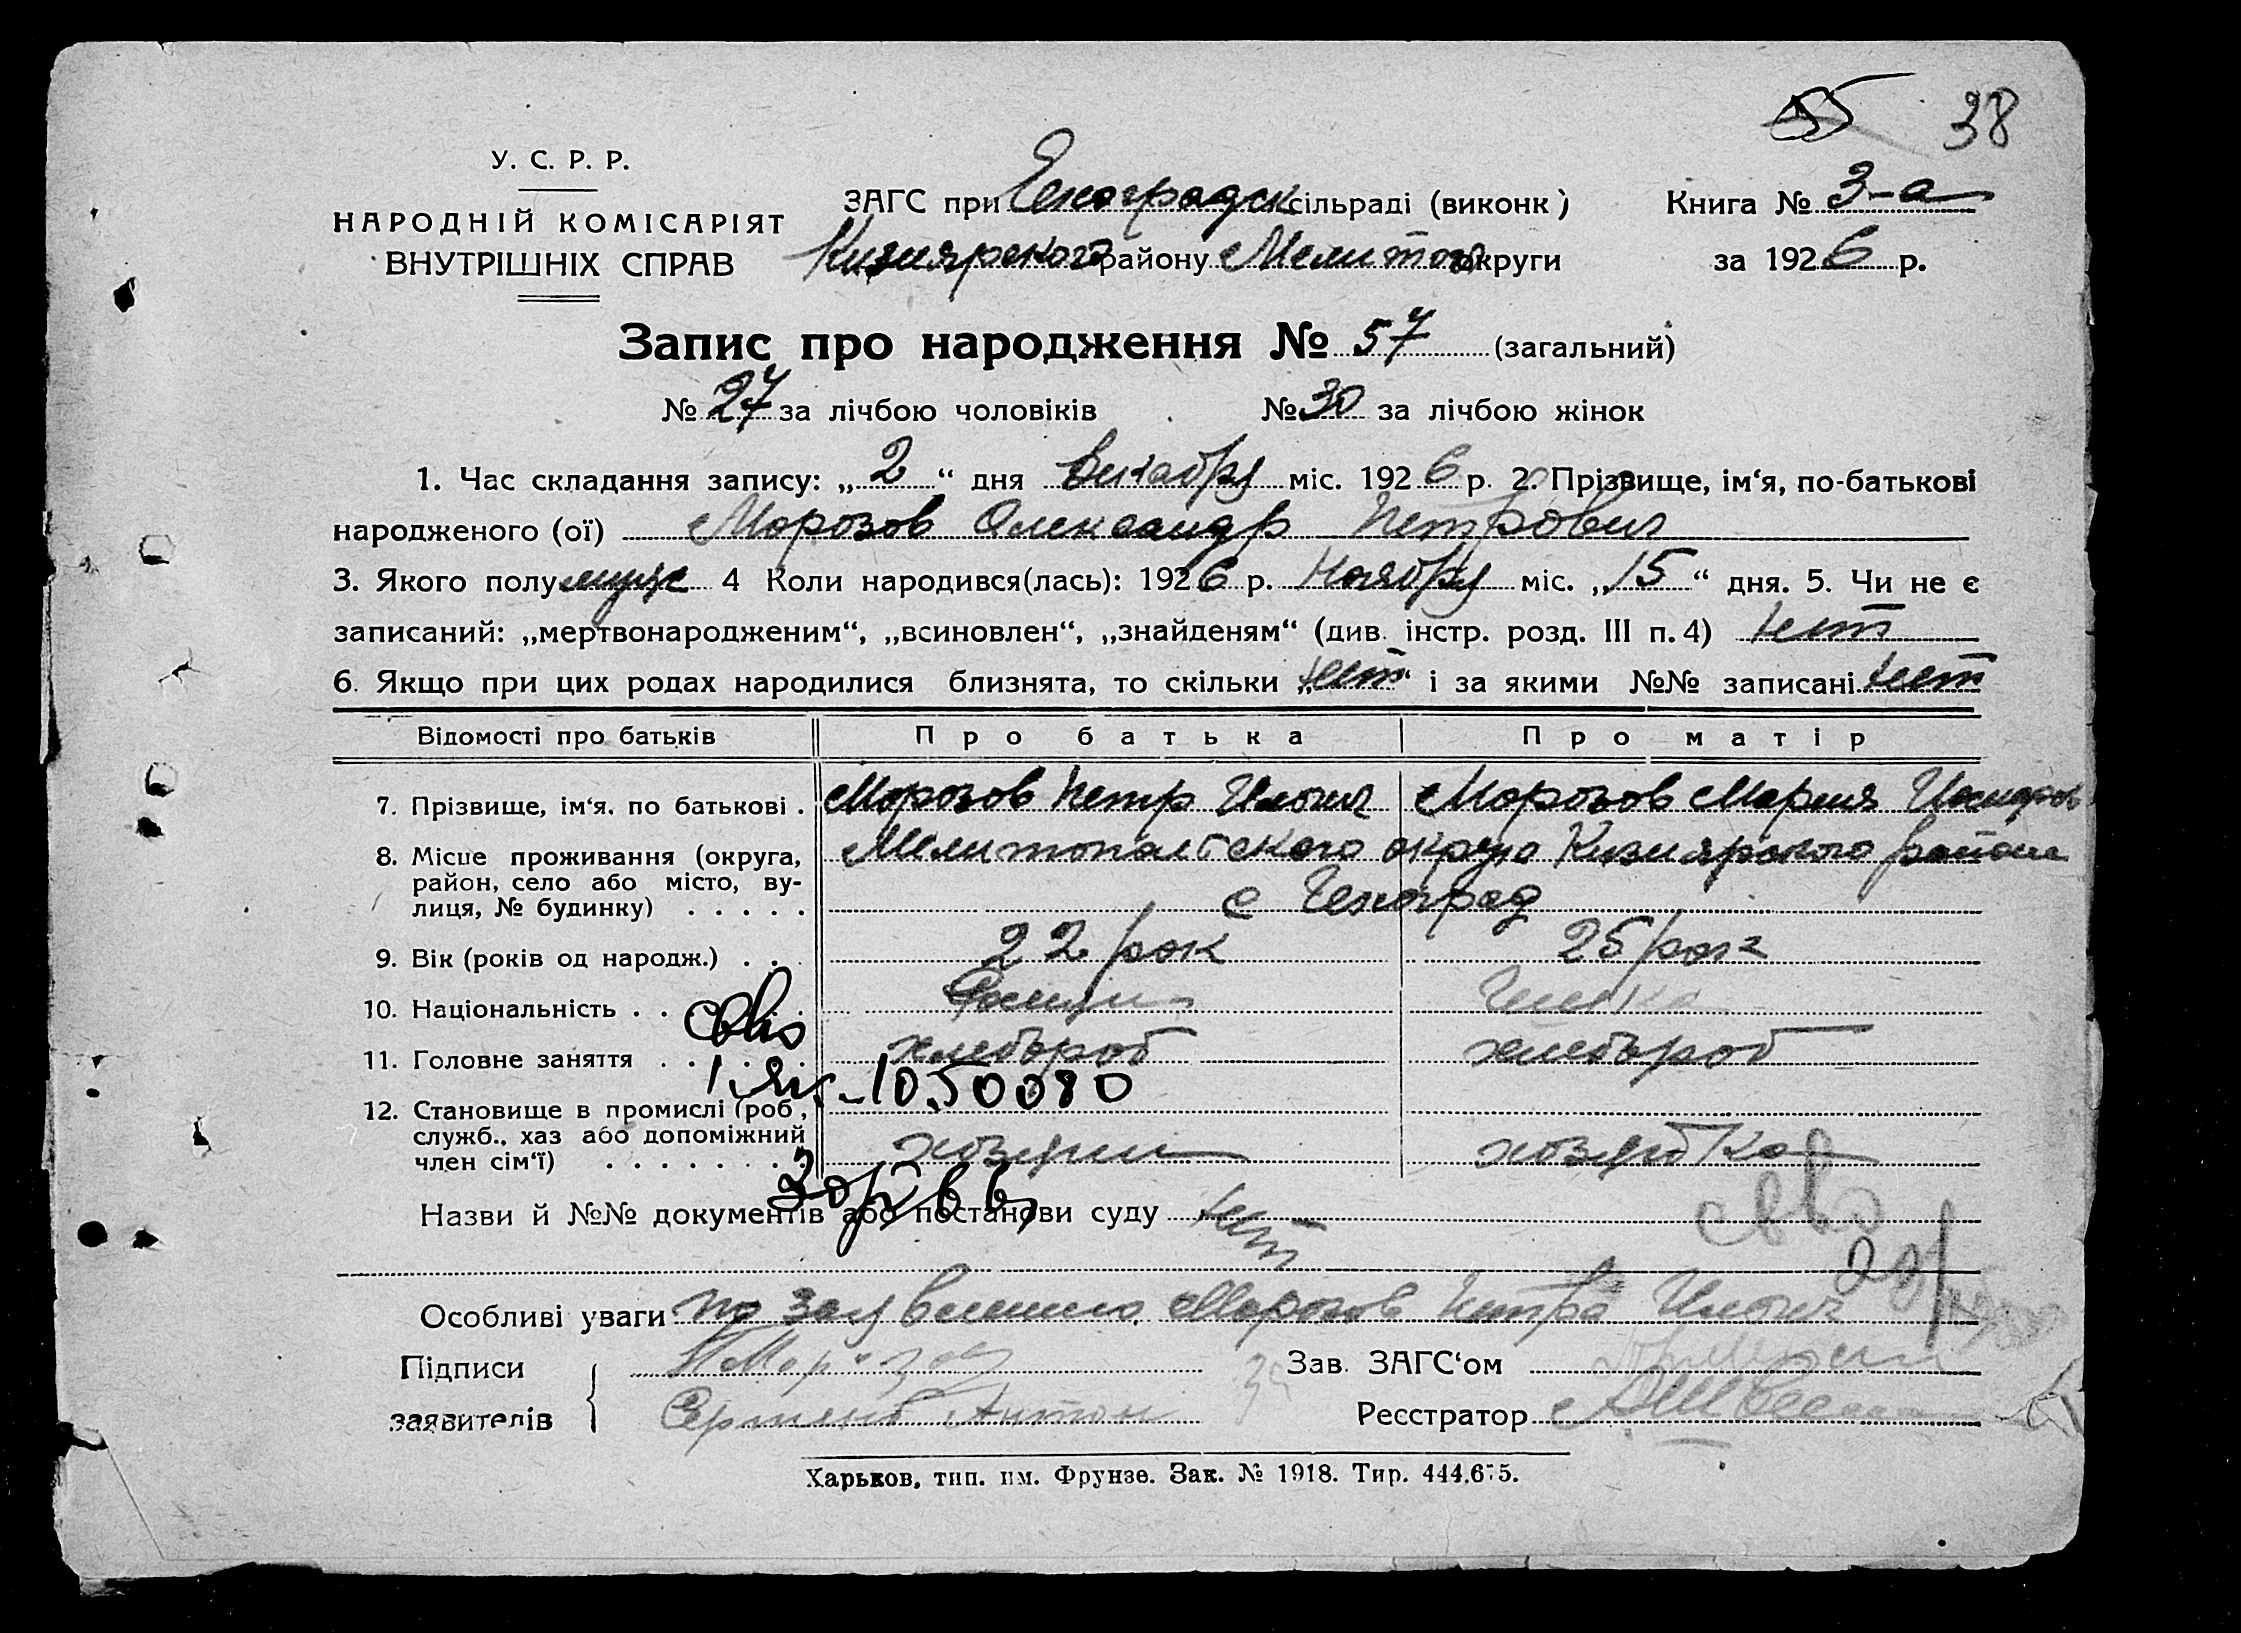 55 38
У. С. Р. Р.
НАРОДНІЙ КОМІСАРІЯТ
ВНУТРІШНІХ СПРАВ
ЗАГС при сільраді (виконк)
Кизиярского району Мелитоп округи
Книга № 3-а
за 1926 р.
Запис про народження № 57 (загальний)
№ 27 за лічбою чоловіків № 30 за лічбою жінок
1. Час складання запису: „ 2 “ дня Декабря міс. 1926 р. 2. Прізвище, ім‘я, по-батькові
народженого (ої) Морозов Александр Петрович
3. Якого полу муж 4 Коли народився(лась): 1926 р. Ноября міс. „ 15 “ дня. 5. Чи не є
записаний: „мертвонародженим“, „всиновлен“, „знайденям“ (див. інстр. розд. III п. 4) нет
6. Якщо при цих родах народилися близнята, то скільки „ нет “ і за якими №№ записані нет
Відомості про батьків Про батька Про матір
7. Прізвище, ім‘я. по батькові . Морозов Петр Ильич Морозов Мария
8. Місце проживання (округа, Мелитопальского округа Кизиярского района
район, село або місто, ву-
лиця, № будинку) . . . . . с
9. Вік (років од народж.) . . . 22 рок 25 рок
10. Національність . .
11. Головне заняття . . . . . хлебороб хлебороб
1 -1050080
12. Становище в промислі (роб,
служб., хаз або допоміжний
член сім‘ї) . . . . . . . . хозяин хозяйка
Назви й №№ документів або постанови суду нет
Особливі уваги по заявлению Морозов Петра Ильич
Підписи П Морозов Зав. ЗАГС‘ом
заявителів Антон Реєстратор
Харьков, тип. им. Фрунзе. Зак. № 1918. Тир. 444.675.